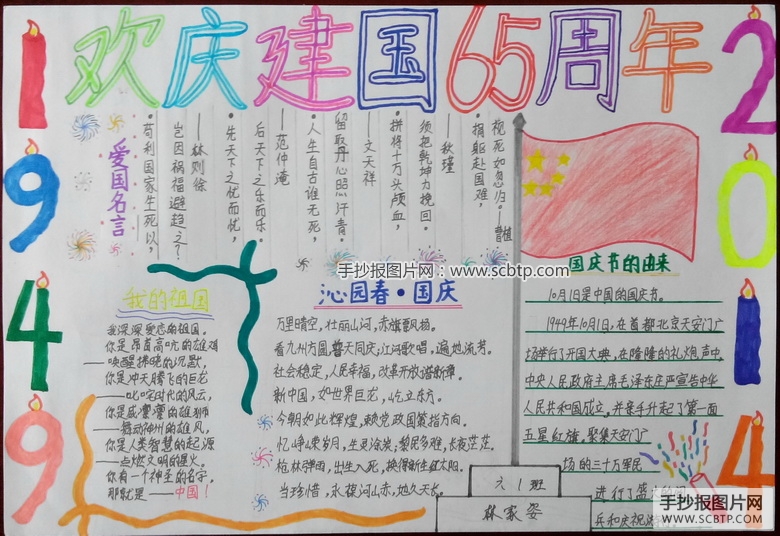 欢庆建国65周年
1949
2014
爱国名言
·苟利国家生死以,
岂因祸福避趋之?
——林则徐
·先天下之忧而忧,
后天下之乐而乐。
——范仲淹
·人生自古谁无死,
留取丹心照汗青。
——文天祥
·拼将十万头颅血,
须把乾坤力挽回。
——秋瑾
·捐躯赴国难,
视死如忽归。——曹植
手抄报图片网:www.scbtp.com
我的祖国
我深深爱恋的祖国。
你是昂首高吭的雄鸡
——唤醒拂晓的沉默,
你是冲天腾飞的巨龙
——叱咤时代的风云,
你是威震的雄狮
——舞动神州的雄风,
你是人类智慧的起源
——点燃文明的星火。
你有一个神圣的名字,
那就是——中国!
沁园春·国庆
万里晴空,壮丽山河,赤旗飘扬。
看九州方圆,普天同庆;江河歌唱,遍地流芳。
社会稳定,人民幸福,改革开放谱新章。
新中国,如世界巨龙,屹立东方。
今朝如此辉煌,赖党政国策指方向。
忆峥嵘岁月,生灵涂炭;黎民多难,长夜茫茫。
枪林弹雨,出生入死,换得新生红太阳。
当珍惜,永葆河山赤,地久天长。
国庆节的由来
10月1日是中国的国庆节。
1949年10月1日,在首都北京天安门广
场举行了开国大典,在隆隆的礼炮声中,
中央人民政府主席毛泽东庄严宣告中华
人民共和国成立,并亲手升起了第一面
五星红旗。聚集天安门广
场的三十万军民
进行了
兵和庆祝
六1班
林家姿
手抄报图片网
WWW.SCBTP.COM